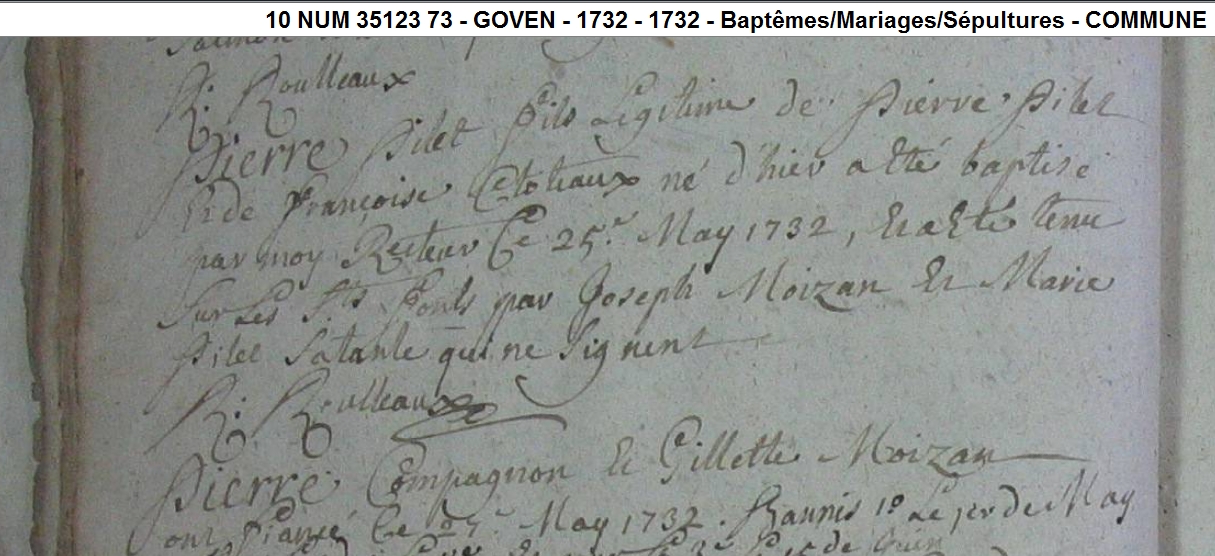 10 NUM 35123 73 - GOVEN - 1732 - 1732 - Baptêmes/Mariages/Sépultures - COMMUNE
R: Roulleaux
Pierre Pilet fils Legitime de Pierre Pilet
Et de françoise né d'hier a Eté baptisé
par moy Recteur Ce 25.e May 1732, Et a Eté tenu
Sur Les S.ts fonts par Joseph Moizan Et Marie
Pilet Sa tante qui ne Signent
R: Roulleaux
Pierre Compagnon Et Gillette Moizan
ont fiancé Ce May 1732. Bannis 1º Le jer de May